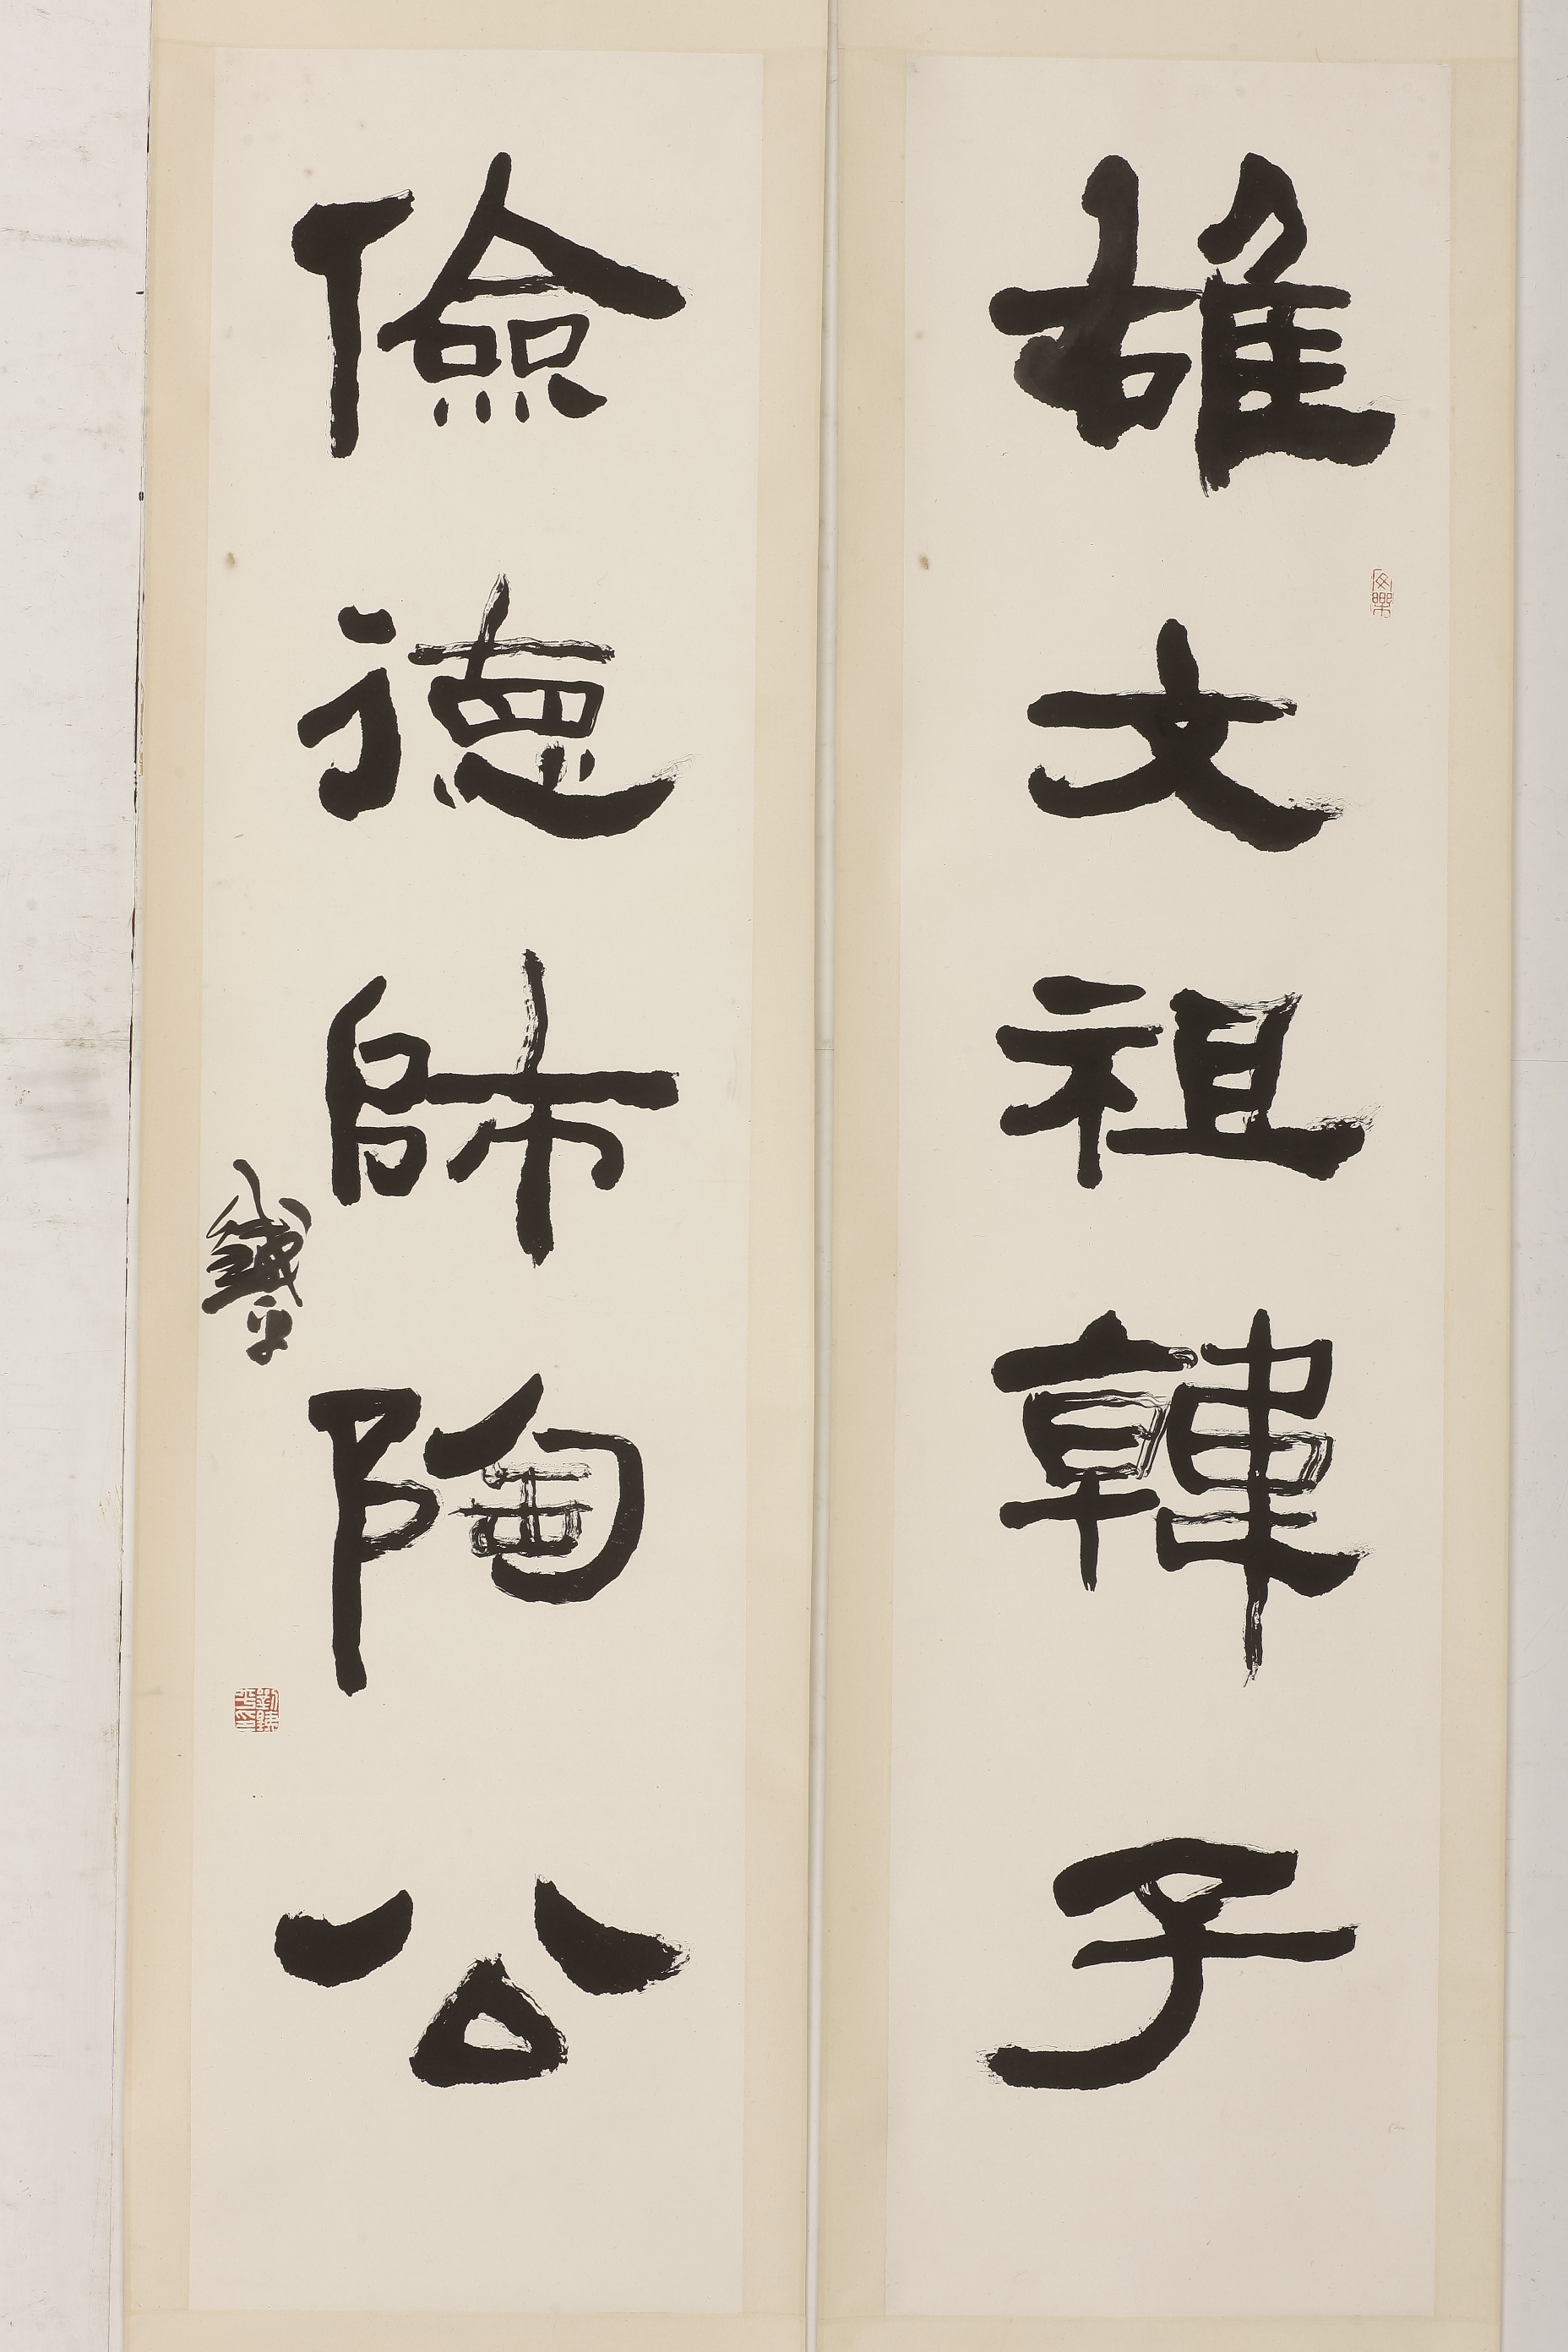 雄文祖韓子
儉德師陶公
鐵平